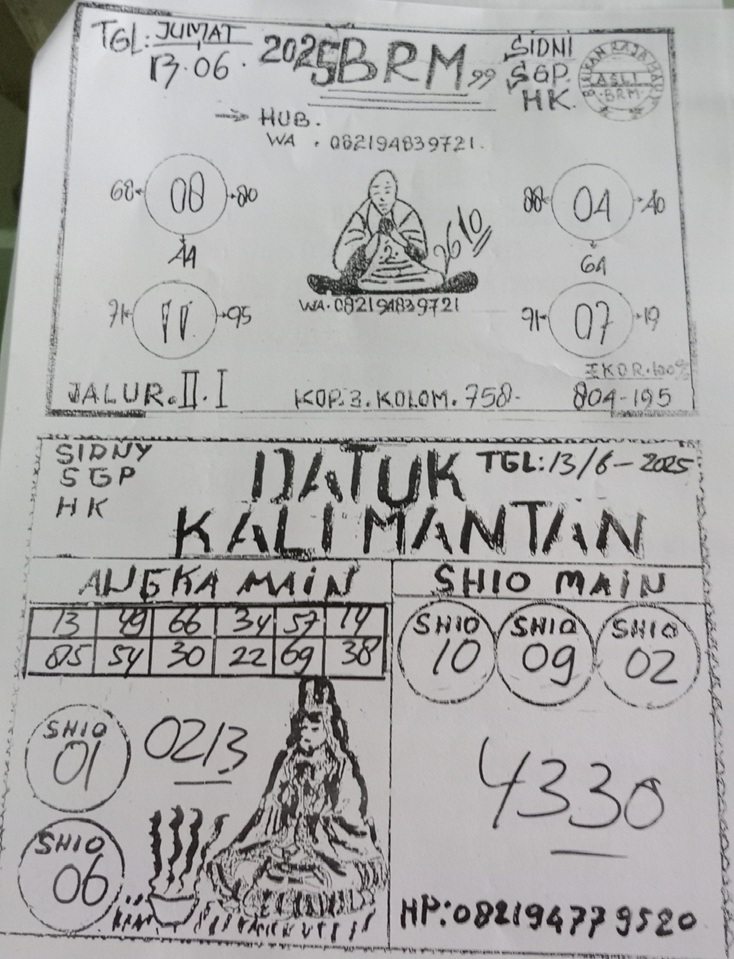 TGL: JUMAT
13.06. 2025
BRM 99
SIDNI
SGP.
HK.
ASLI
BRM
→ HUB.
WA . 082194839721.
68 08 80
AA
2610
2
88 04 40
6A
71 11 95
WA. 082194839721
91 07 19
EKOR.100%
JALUR.II.I
KOP.3.KOLOM.758-
804-195
SIDNY
SGP
HK
DATUK
KALIMANTAN
TGL:13/6-2025
ANGKA MAIN
SHIO MAIN
13 49 66 34 57 14
85 54 30 22 69 38
SHIO 10
SHIO 09
SHIO 02
SHIO 01
0213
4330
SHIO 06
HP:082194779520